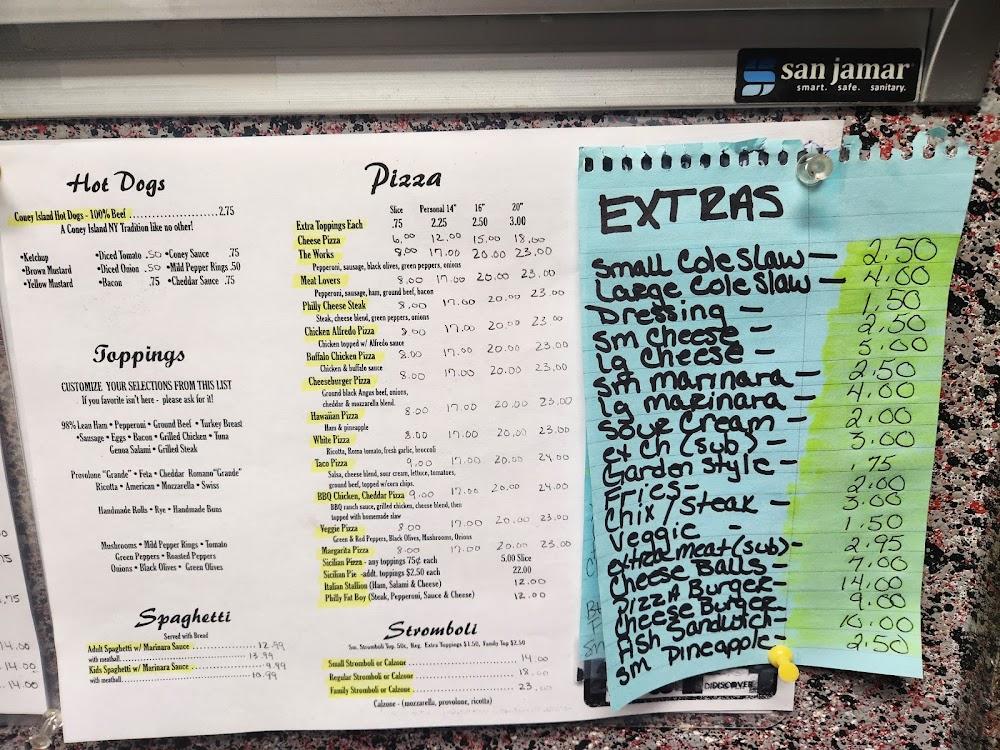 san jamar
smart. safe. sanitary.
Hot Dogs
Coney Island Hot Dogs - 100% Beef 2.75
A Coney Island NY Tradition like no other!
•Ketchup •Diced Tomato .50 •Coney Sauce .75
•Brown Mustard •Diced Onion .50 •Mild Pepper Rings .50
•Yellow Mustard •Bacon .75 •Cheddar Sauce .75
Toppings
CUSTOMIZE YOUR SELECTIONS FROM THIS LIST
If you favorite isn't here - please ask for it!
98% Lean Ham • Pepperoni • Ground Beef • Turkey Breast
•Sausage • Eggs • Bacon • Grilled Chicken • Tuna
Genoa Salami • Grilled Steak
Provolone "Grande" • Feta • Cheddar Romano"Grande"
Ricotta • American • Mozzarella • Swiss
Handmade Rolls • Rye • Handmade Buns
Mushrooms • Mild Pepper Rings • Tomato
Green Peppers • Roasted Peppers
Onions • Black Olives • Green Olives
Spaghetti
Served with Bread
Adult Spaghetti w/ Marinara Sauce 12.99
with meatball 13.99
Kids Spaghetti w/ Marinara Sauce 9.99
with meatball 10.99
Pizza
Slice Personal 14" 16" 20"
Extra Toppings Each .75 2.25 2.50 3.00
Cheese Pizza 6.00 12.00 15.00 18.00
The Works 8.00 17.00 20.00 23.00
Pepperoni, sausage, black olives, green peppers, onions
Meat Lovers 8.00 17.00 20.00 23.00
Pepperoni, sausage, ham, ground beef, bacon
Philly Cheese Steak 8.00 17.00 20.00 23.00
Steak, cheese blend, green peppers, onions
Chicken Alfredo Pizza 8.00 17.00 20.00 23.00
Chicken topped w/ Alfredo sauce
Buffalo Chicken Pizza 8.00 17.00 20.00 23.00
Chicken & buffalo sauce
Cheeseburger Pizza 8.00 17.00 20.00 23.00
Ground black Angus beef, onions,
cheddar & mozzarella blend.
Hawaiian Pizza 8.00 17.00 20.00 23.00
Ham & pineapple
White Pizza 8.00 17.00 20.00 23.00
Ricotta, Roma tomato, fresh garlic, broccoli
Taco Pizza 9.00 17.00 20.00 24.00
Salsa, cheese blend, sour cream, lettuce, tomatoes,
ground beef, topped w/corn chips.
BBQ Chicken, Cheddar Pizza 9.00 17.00 20.00 24.00
BBQ ranch sauce, grilled chicken, cheese blend, then
topped with homemade slaw
Veggie Pizza 8.00 17.00 20.00 23.00
Green & Red Peppers, Black Olives, Mushrooms, Onions
Margarita Pizza 8.00 17.00 20.00 23.00
Sicilian Pizza - any toppings 75¢ each 5.00 Slice
Sicilian Pie -addt. toppings $2.50 each 22.00
Italian Stallion (Ham, Salami & Cheese) 12.00
Philly Fat Boy (Steak, Pepperoni, Sauce & Cheese) 12.00
Stromboli
Sm. Stromboli Top. 50c, Reg. Extra Toppings $1.50, Family Top $2.50
Small Stromboli or Calzone 14.00
Regular Stromboli or Calzone 18.00
Family Stromboli or Calzone 23.00
Calzone - (mozzarella, provolone, ricotta)
EXTRAS
Small Cole Slaw — 2.50
Large Cole Slaw — 4.00
Dressing — 1.50
Sm Cheese — 2.50
Lg Cheese — 5.00
Sm Marinara — 2.50
Lg Marinara — 4.00
Sour Cream — 2.00
ex Ch (sub) — 3.00
Garden Style — .75
Fries — 2.00
Chix / Steak — 3.00
Veggie — 1.50
extra meat (sub) — 2.95
Cheese Balls — 7.00
Pizza Burger — 14.00
Cheese Burger — 9.00
Fish Sandwich — 10.00
Sm Pineapple — 2.50
DISCOVER
.75
14.00
14.00
14.00